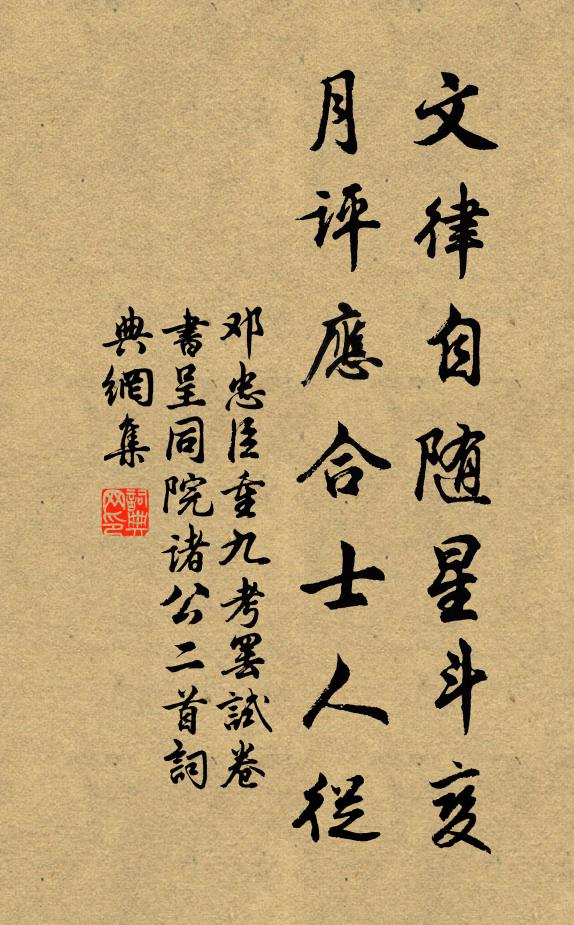 文律自随星斗变
月评應合士人從
邓忠臣重九考罢試卷
書呈同院诸公二首詞
典網集
詞典網印